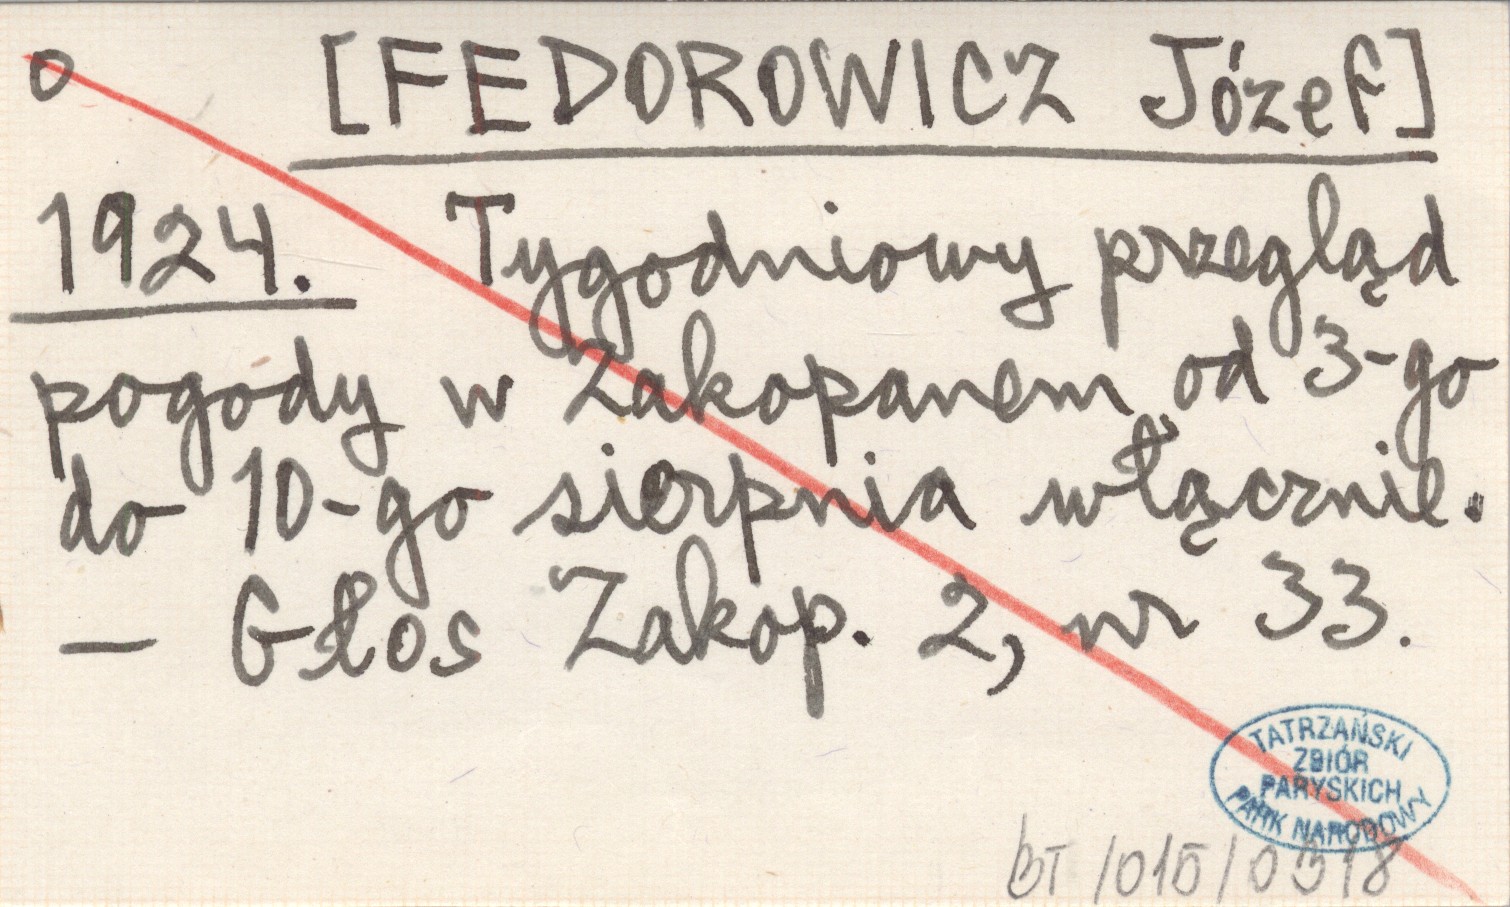 o [FEDOROWICZ Józef]
1924. Tygodniowy przegląd
pogody w Zakopanem od 3-go
do 10-go sierpnia włącznie.
— Głos Zakop. 2, nr 33.
TATRZAŃSKI
ZBIÓR
PARYSKICH
PARK NARODOWY
BT/015/0318